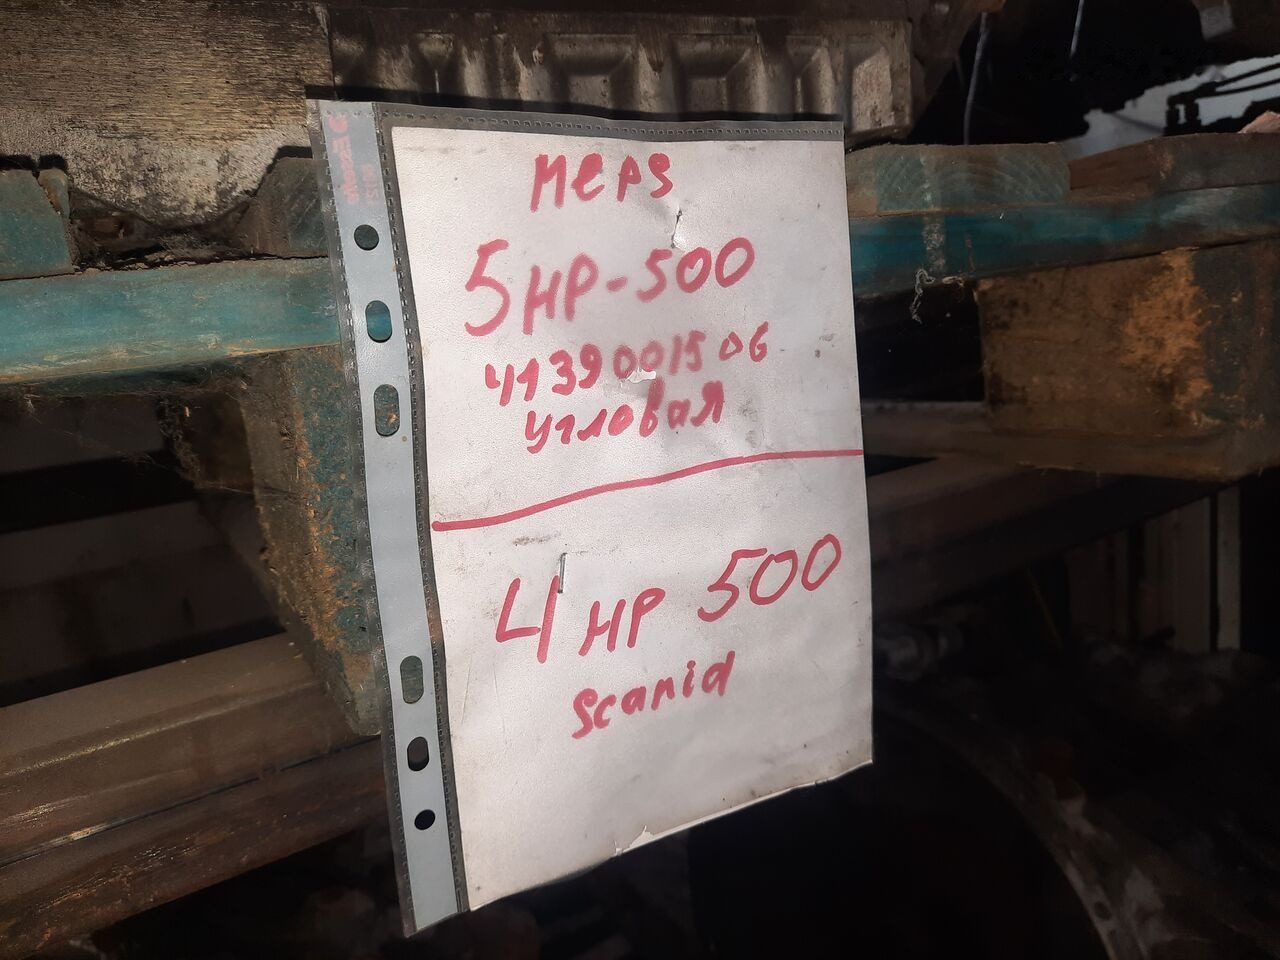 мерs
5HP-500
4139001506
угловая
4HP 500
Scanid